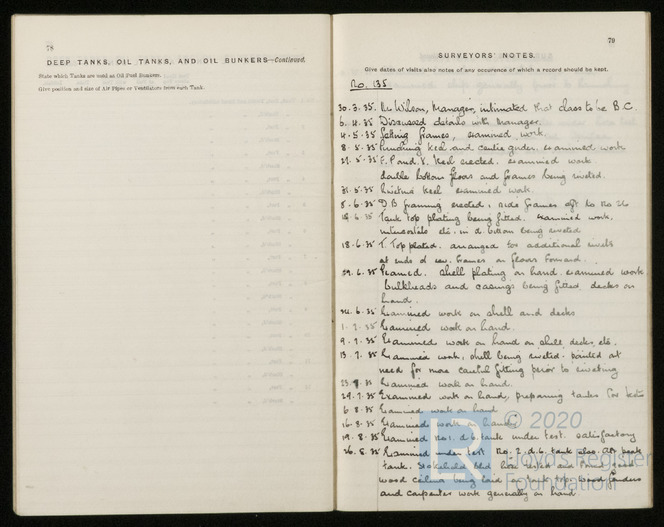 78
DEEP TANKS, OIL TANKS, AND OIL BUNKERS—Continued.
State which Tanks are used as Oil Fuel Bunkers.
Give position and size of Air Pipes or Ventilators from each Tank.
79
SURVEYORS' NOTES.
Give dates of visits also notes of any occurence of which a record should be kept.
No. 135.
30. 3. 35. Mr Wilson, Manager, intimated that class to be B.C.
6. 4. 35 Discussed details with Manager.
4. 5. 35 frames, examined work.
8. 5. 35 keel and centre girder. examined work
21. 5. 35 F. P and V. Keel erected. examined work
double bottom floors and frames being riveted.
31. 5. 35 Riveting keel examined work.
8. 6. 35 D B framing erected, side frames aft to No 26
14. 6. 35 Tank top plating being fitted. examined work,
etc. in d. bottom being riveted
18. 6. 35 T. Top plated. arranged for additional rivets
at ends of rev. frames on floors forward.
29. 6. 35 Framed. Shell plating on hand. examined work
bulkheads and casings being fitted, decks on
hand.
24. 6. 35 Examined work on shell and decks
1. 7. 35 Examined work on hand.
9. 7. 35 Examined work on hand on shell, decks, etc.
13. 7. 35 Examined work, shell being riveted. pointed out
need for more careful fitting prior to riveting
23. 7. 35 Examined work on hand.
29. 7. 35 Examined work on hand, preparing tanks for tests
6. 8. 35 Examined work on hand
16. 8. 35 Examined work on hand
19. 8. 35 Examined No 1. d.b. tank under test. satisfactory
26. 8. 35 Examined under test No. 2 d.b. tank also aft peak
tank. Stokehold bhd hose tested and found good
wood ceiling being laid on tank top. wood fenders
and carpenter work generally on hand
LR
© 2020
Lloyd's Register
Foundation